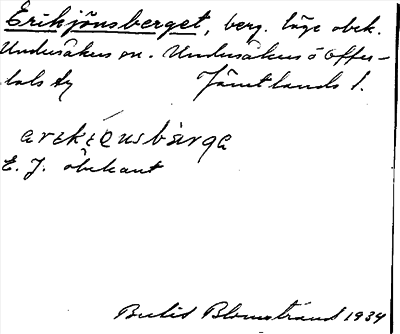 Erikjönsberget, berg. läge obek.
Undersåkers sn. Undersåkers o Offer-
dals tg Jämtlands l.
E. J. obekant
Bertil Blomstrand 1934